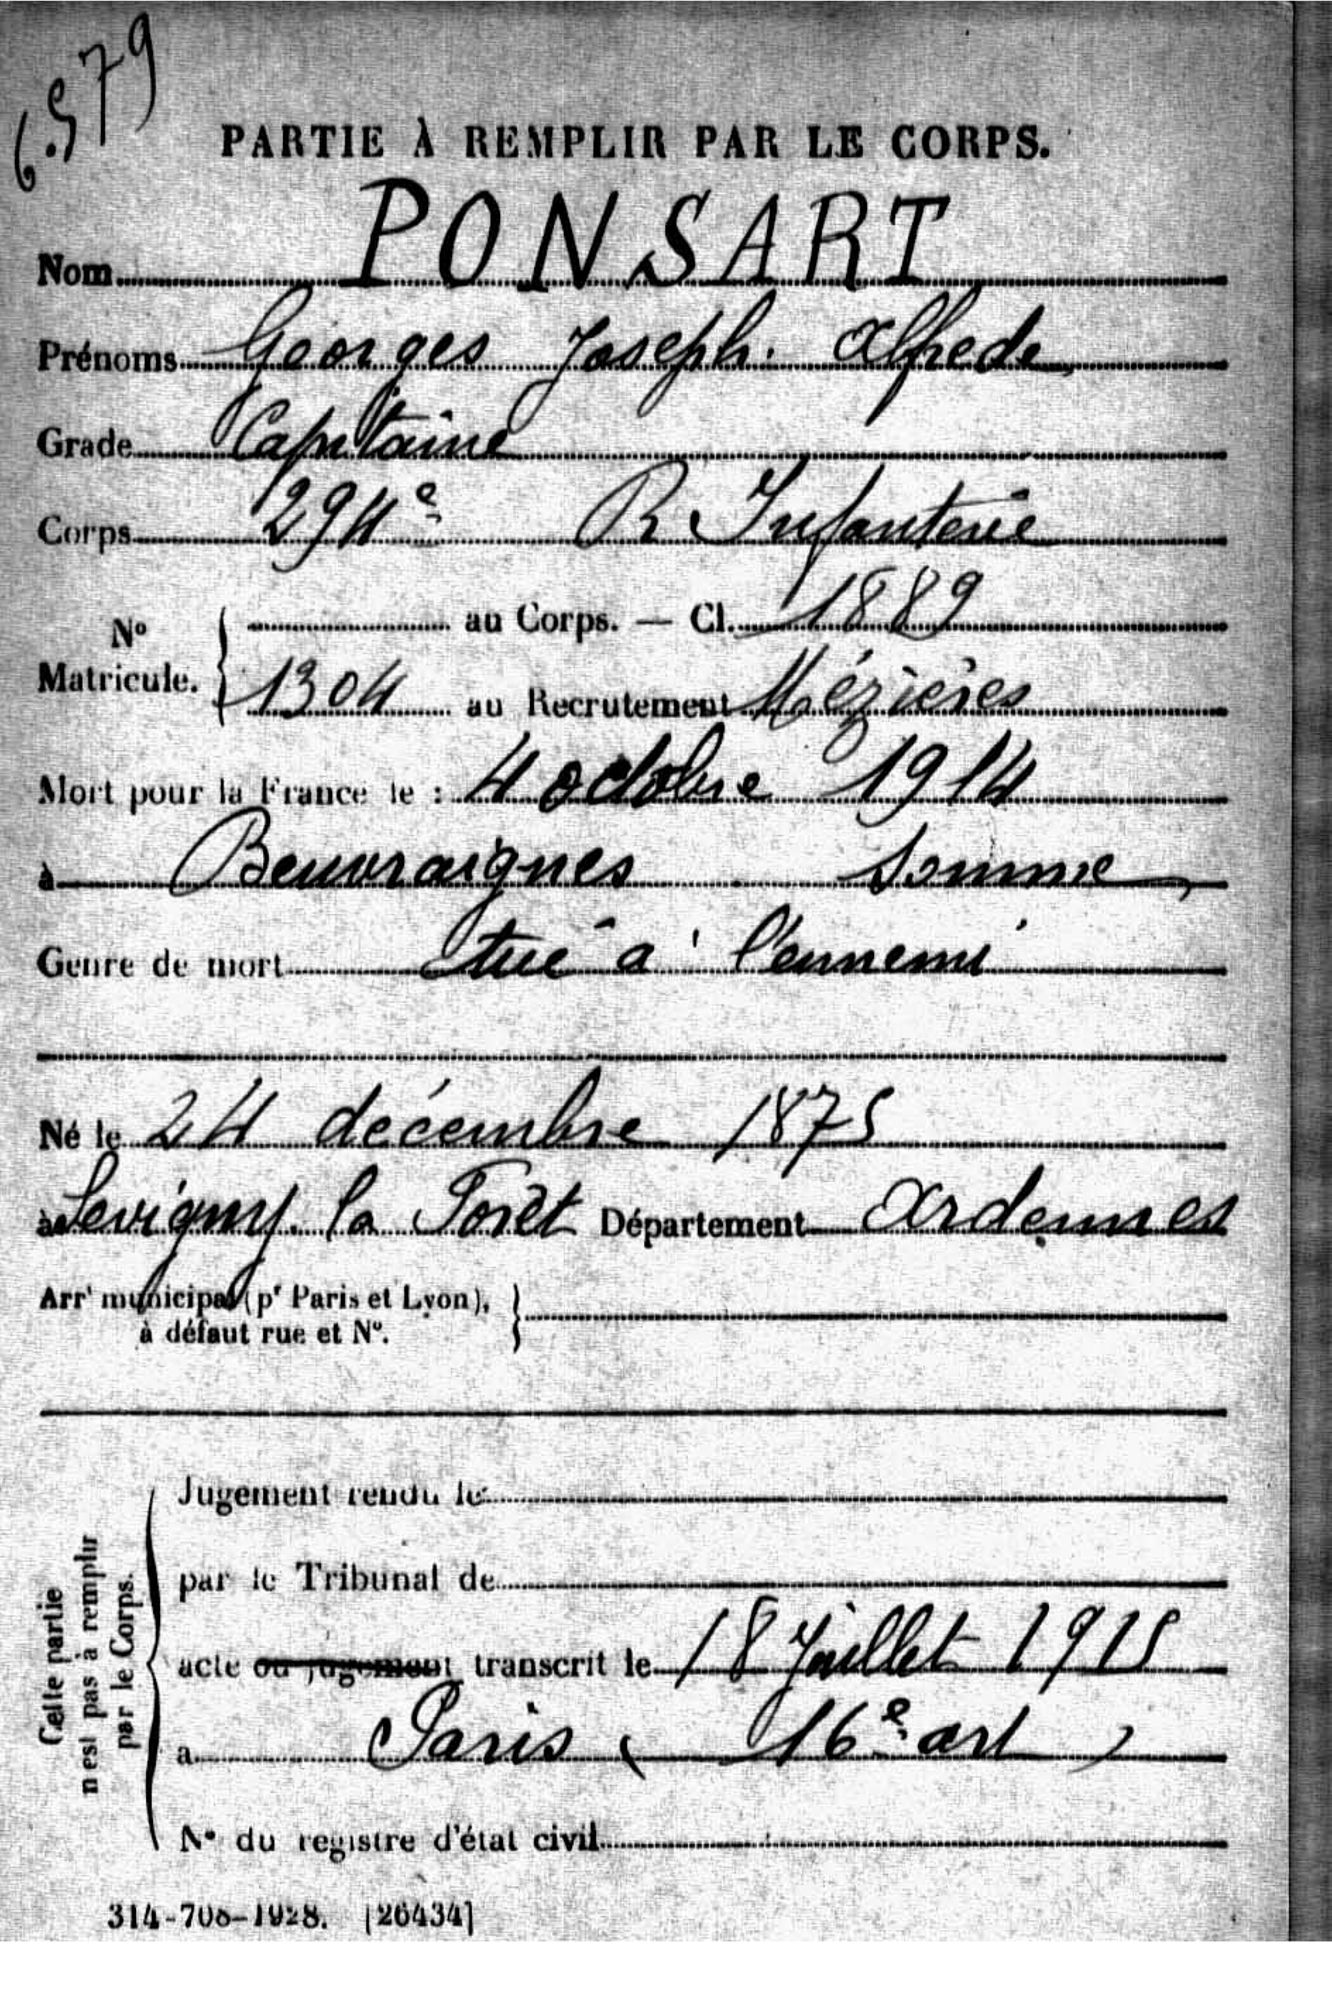 6.579
PARTIE À REMPLIR PAR LE CORPS.
Nom PONSART
Prénoms Georges Joseph. Alfrede
Grade Capitaine
Corps 294e R Infanterie
No Matricule. { au Corps. — Cl. 1889
1304 au Recrutement Mézières
Mort pour la France le : 4 octobre 1914
à Beuvraignes Somme
Genre de mort tué à l'ennemi
Né le 24 décembre 1875
à Sevigny. la Forêt Département Ardennes
Arrt municipal (pr Paris et Lyon), }
à défaut rue et No.
Cette partie
n'est pas à remplir
par le Corps.
Jugement rendu le
par le Tribunal de
acte ou jugement transcrit le 18 Juillet 1915
a Paris ( 16e art )
No du registre d'état civil
314-708-1928. [26434]